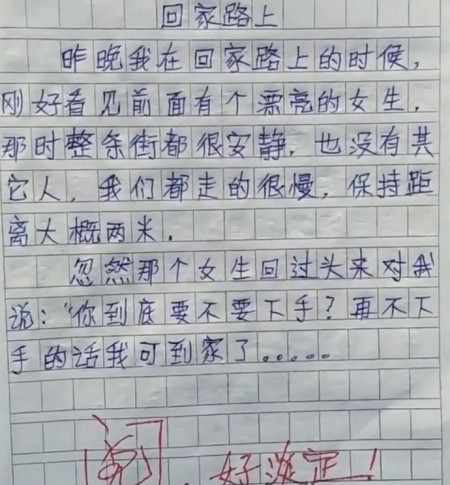 回家路上
昨晚我在回家路上的时候,
刚好看见前面有个漂亮的女生.
那时整条街都很安静.也没有其
它人.我们都走的很慢.保持距
离大概两米.
忽然那个女生回过头来对我
说:“你到底要不要下手?再不下
手的话我可到家了.....
阅.好淡定!